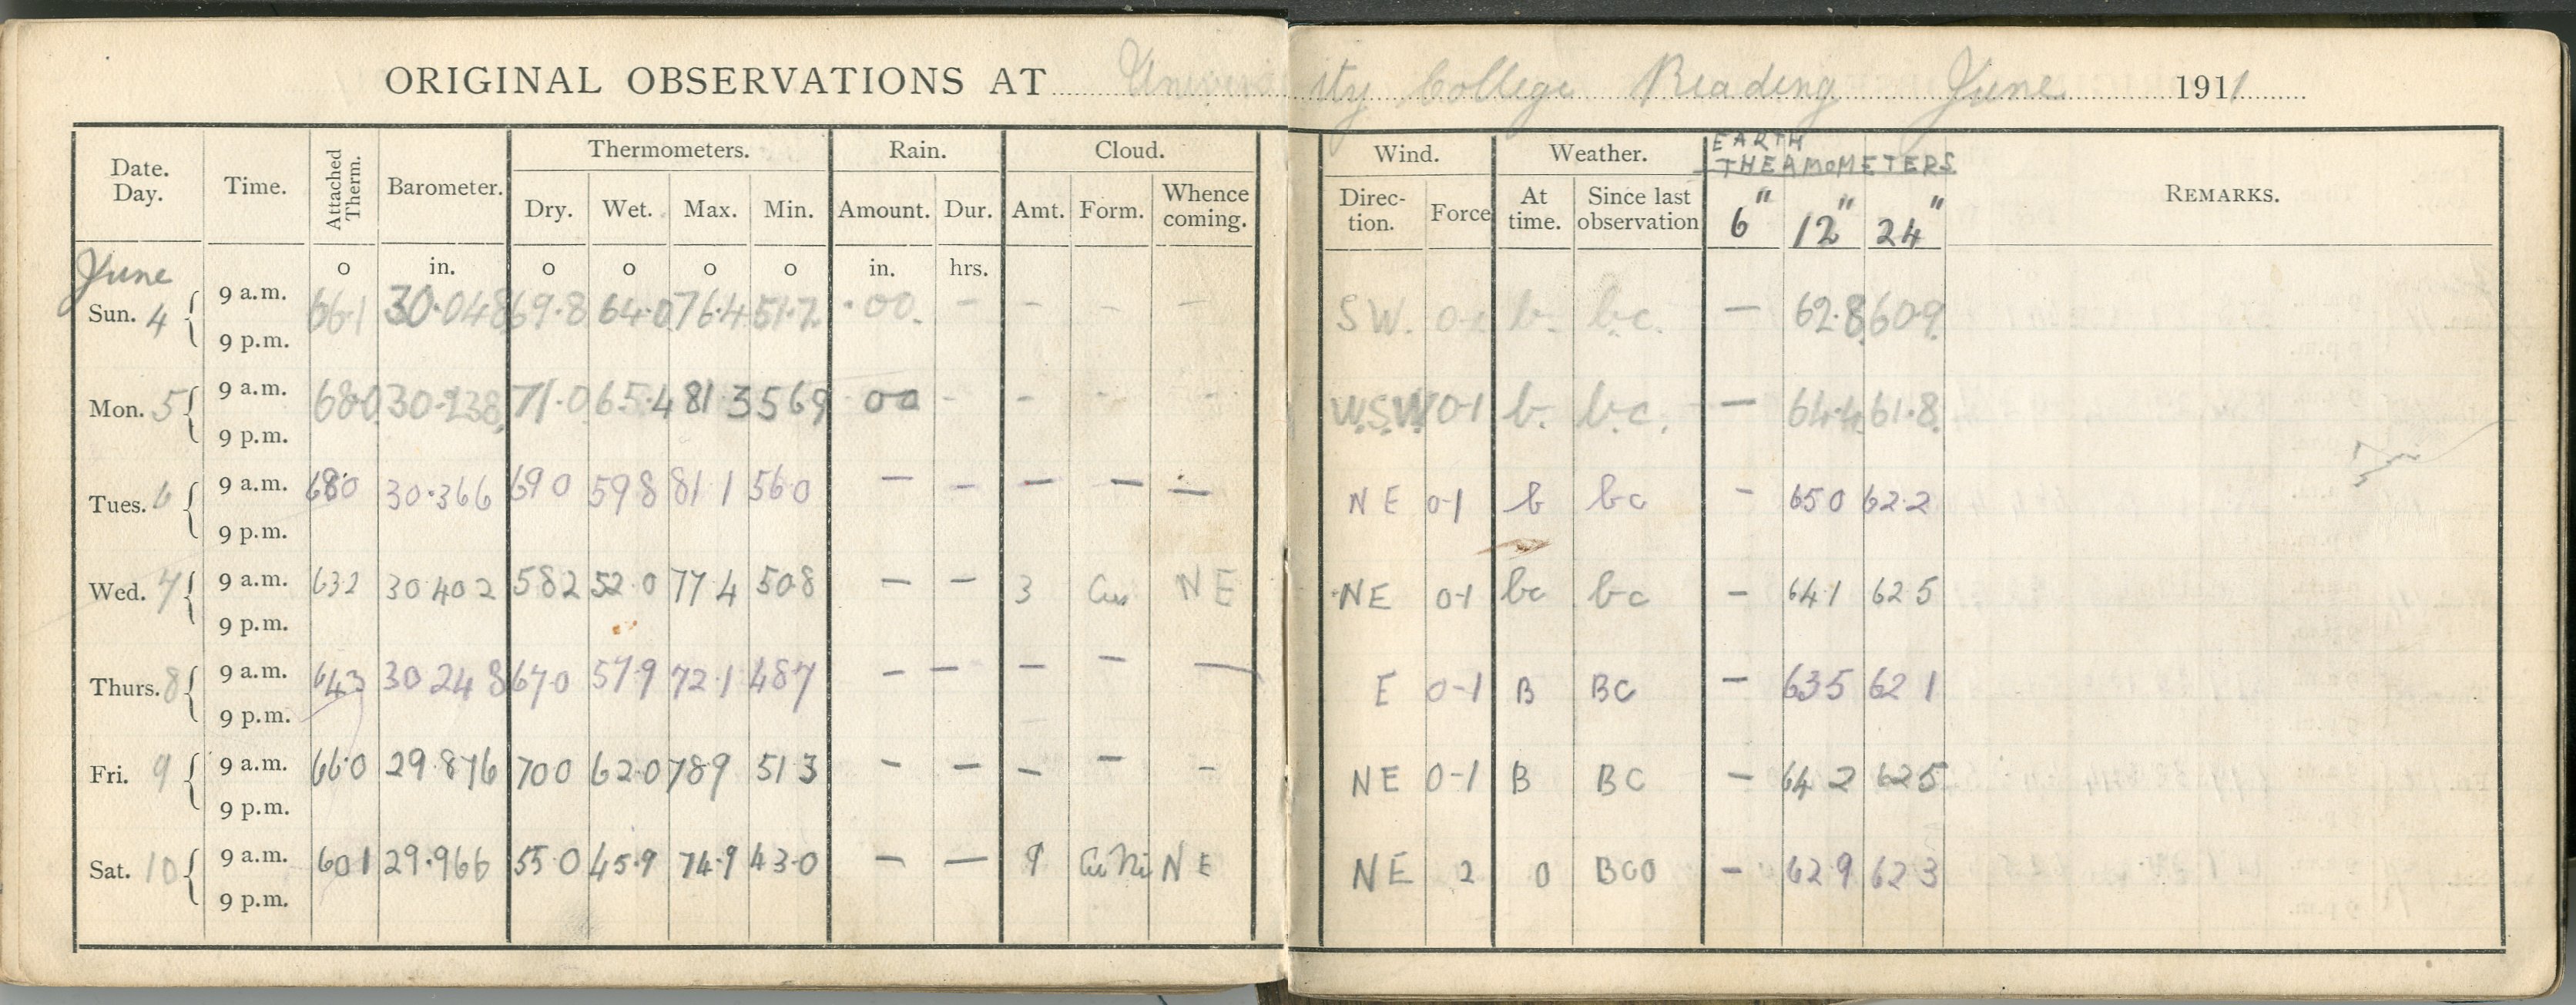 ORIGINAL OBSERVATIONS AT University College Reading June 1911
Date. Day. Time. Attached Therm. Barometer. Thermometers. Rain. Cloud. Wind. Weather. EARTH THEAMOMETERS REMARKS.
Dry. Wet. Max. Min. Amount. Dur. Amt. Form. Whence coming. Direc- tion. Force At time. Since last observation 6" 12" 24"
June o in. o o o o in. hrs.
Sun. 4 9 a.m. 66.1 30.048 69.8 64.0 76.4 51.7 .00. - - - - SW. 0-1 b. b.c. - 62.8 60.9
9 p.m.
Mon. 5 9 a.m. 68.0 30.238 71.0 65.4 81.3 56.9 00 - - - - W.S.W 0-1 b. b.c. - 64.4 61.8
9 p.m.
Tues. 6 9 a.m. 68.0 30.366 69 0 59 8 81 1 56 0 - - - - - NE 0-1 b bc - 65 0 62.2
9 p.m.
Wed. 7 9 a.m. 63 2 30 402 58 2 52 0 77 4 50 8 - - 3 Cu NE NE 0-1 bc bc - 64 1 62 5
9 p.m.
Thurs. 8 9 a.m. 64 3 30 248 67 0 57.9 72.1 48 7 - - - - - E 0-1 B BC - 63 5 62 1
9 p.m.
Fri. 9 9 a.m. 66.0 29.876 70 0 62.0 78 9 51 3 - - - - - NE 0-1 B BC - 64 2 62 5
9 p.m.
Sat. 10 9 a.m. 60 1 29.966 55.0 45.9 74.9 43.0 - - 9 Cu Ni NE NE 2 0 BCO - 62 9 62 3
9 p.m.